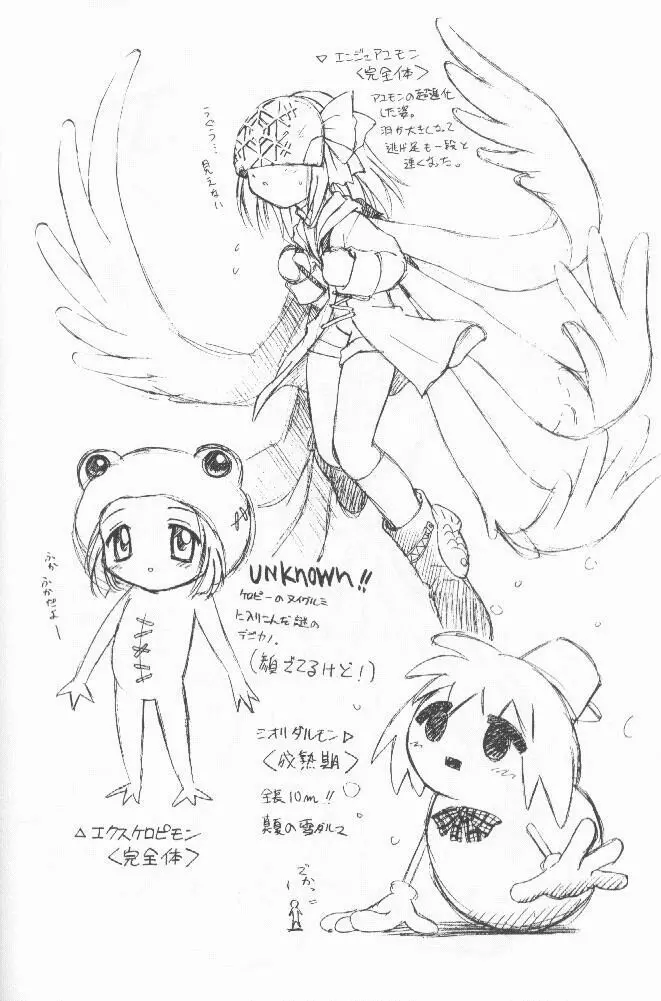 ▽エンジェアユモン
〈完全体〉
アユモンの超進化
した姿。
羽が大きくなって
逃げ足も一段と
速くなった。
うぐぅ… 見えない
UNKNOWN!!
ケロピーのヌイグルミ
に入りこんだ謎の
デジカノ。
(顔でてるけど!)
ぶかぶかだよー
△エクスケロピモン
〈完全体〉
ミオリダルモン▷
〈成熟期〉
全長10m!!
真夏の雪ダルマ
でかっ